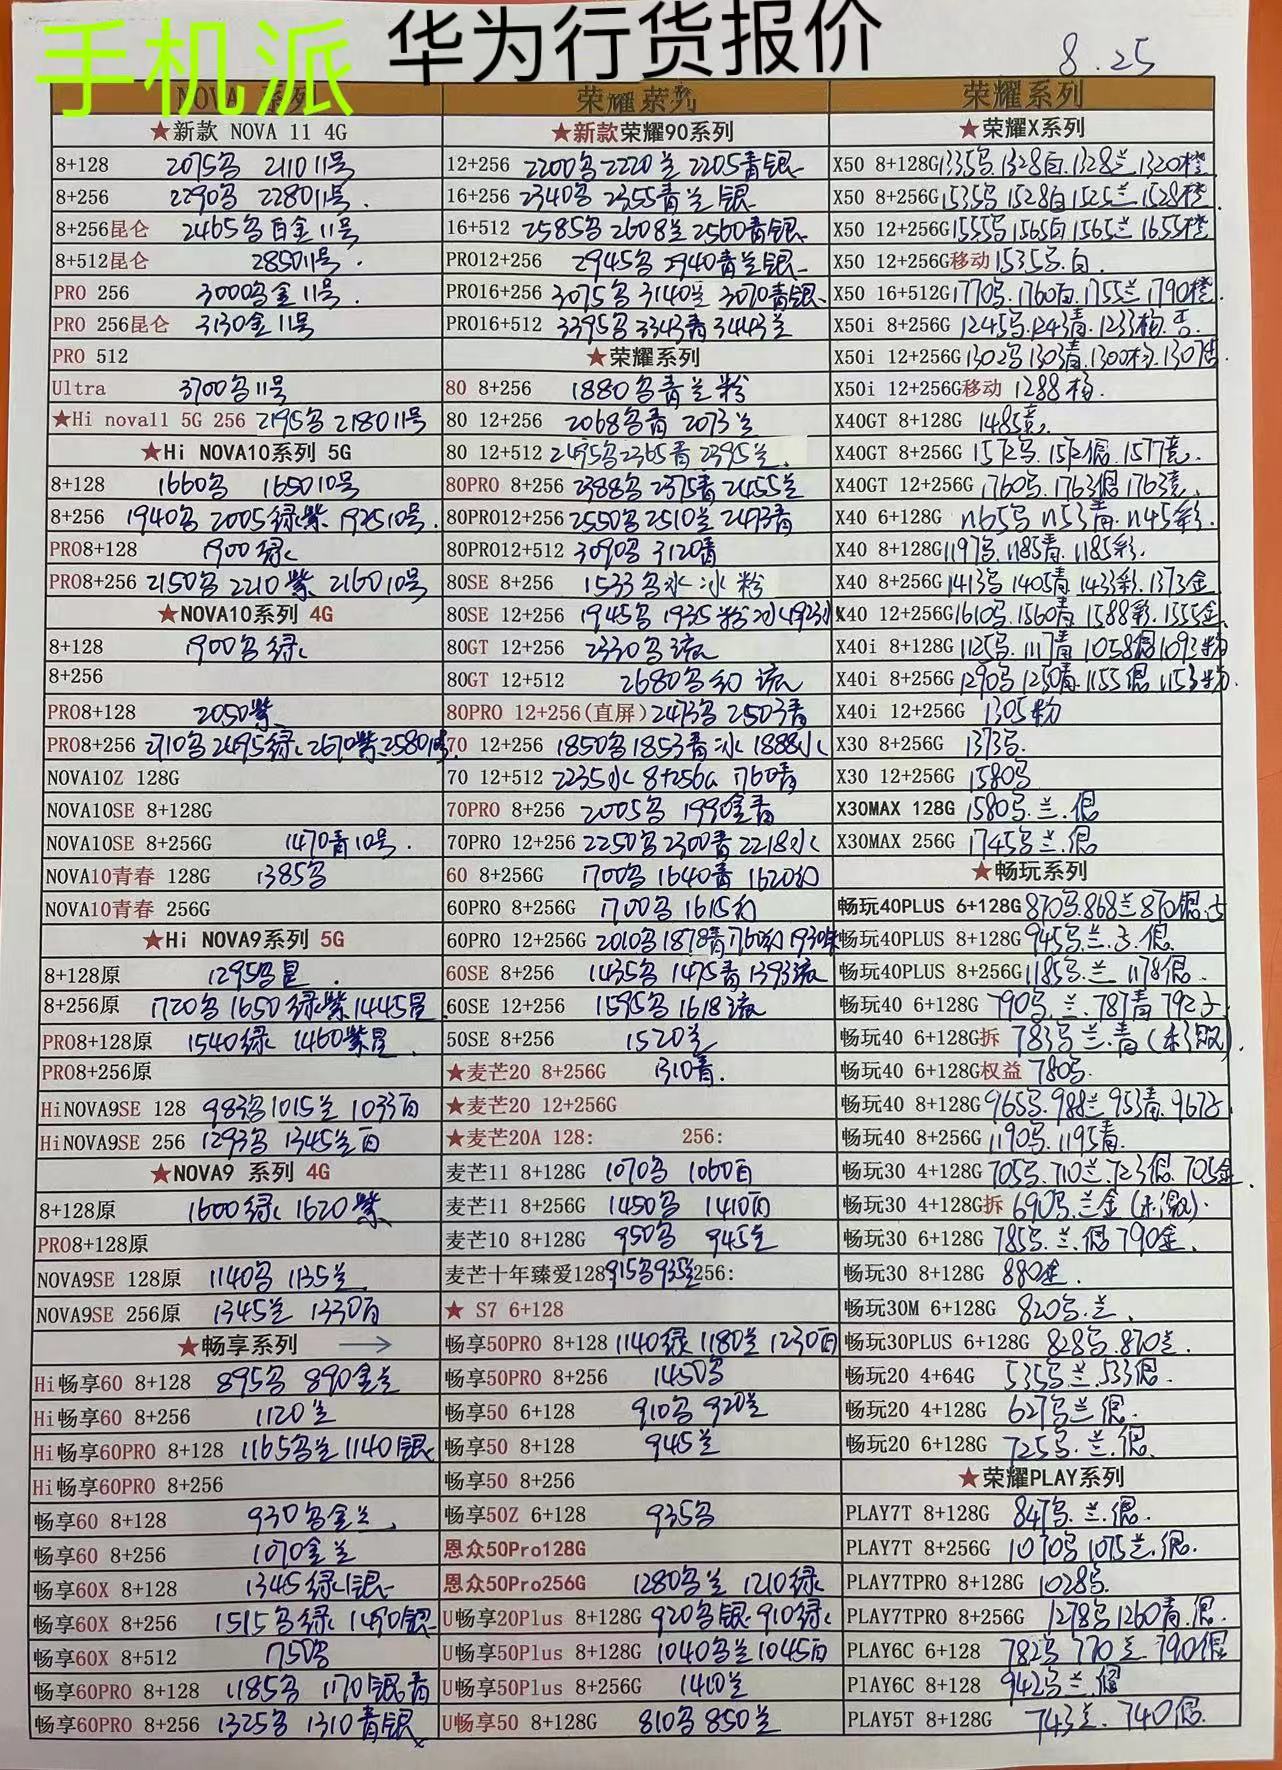 手机派 华为行货报价
8.25
NOVA 系列
★新款 NOVA 11 4G
8+128 2075 2110 11号
8+256 2290 2280 11号
8+256昆仑 2465 白金 11号
8+512昆仑 2850 11号
PRO 256 3000 金 11号
PRO 256昆仑 3130金 11号
PRO 512
Ultra 3700 11号
★Hi nova11 5G 256 2195 2180 11号
★Hi NOVA10系列 5G
8+128 1660 1650 10号
8+256 1940 2005绿紫 1925 10号
PRO8+128 1900绿
PRO8+256 2150 2210紫 2160 10号
★NOVA10系列 4G
8+128 1900 绿
8+256
PRO8+128 2050紫
PRO8+256 2710 2495绿 2670紫 2580
NOVA10Z 128G
NOVA10SE 8+128G
NOVA10SE 8+256G 1470青10号
NOVA10青春 128G 1385
NOVA10青春 256G
★Hi NOVA9系列 5G
8+128原 1295 星
8+256原 1720 1650绿紫 1445星
PRO8+128原 1540绿 1460紫星
PRO8+256原
HiNOVA9SE 128 983 1015兰 1033白
HiNOVA9SE 256 1293 1345兰白
★NOVA9 系列 4G
8+128原 1600绿 1620紫
PRO8+128原
NOVA9SE 128原 1140 1135兰
NOVA9SE 256原 1345兰 1330白
★畅享系列 →
Hi畅享60 8+128 895 890金兰
Hi畅享60 8+256 1120兰
Hi畅享60PRO 8+128 1165 兰 1140银
Hi畅享60PRO 8+256
畅享60 8+128 930 金兰
畅享60 8+256 1070金兰
畅享60X 8+128 1345绿银
畅享60X 8+256 1515 绿 1490银
畅享60X 8+512 1750
畅享60PRO 8+128 1185 1170银青
畅享60PRO 8+256 1325 1310青银
荣耀系列
★新款荣耀90系列
12+256 2200 2220兰 2205青银
16+256 2340 2355青兰银
16+512 2585 2608兰 2560青银
PRO12+256 2945 2940青兰银
PRO16+256 3075 3140兰 3070青银
PRO16+512 3395 3343青 3443兰
★荣耀系列
80 8+256 1880 青兰粉
80 12+256 2068 青 2073兰
80 12+512 2495 2365青 2395兰
80PRO 8+256 2388 2375青 2455兰
80PRO12+256 2550 2510兰 2493青
80PRO12+512 3090 3120青
80SE 8+256 1533 冰 粉
80SE 12+256 1945 1935粉
80GT 12+256 2330 流
80GT 12+512 2680 幻 流
80PRO 12+256(直屏) 2473 2503青
70 12+256 1850 1853青冰 1888水
70 12+512 2235水 8+256G 1760青
70PRO 8+256 2005 1990金青
70PRO 12+256 2250 2300青 2218水
60 8+256G 1700 1640青 1620幻
60PRO 8+256G 1700 1615幻
60PRO 12+256G 2010 1878青
60SE 8+256 1435 1475青 1393流
60SE 12+256 1595 1618流
50SE 8+256 1520兰
★麦芒20 8+256G 1310青
★麦芒20 12+256G
★麦芒20A 128: 256:
麦芒11 8+128G 1070 1060白
麦芒11 8+256G 1450 1410白
麦芒10 8+128G 950 945兰
麦芒十年臻爱128 915 935兰 256:
★ S7 6+128
畅享50PRO 8+128 1140绿 1180兰 1230白
畅享50PRO 8+256 1450
畅享50 6+128 910 920兰
畅享50 8+128 945兰
畅享50 8+256
畅享50Z 6+128 935
恩众50Pro128G
恩众50Pro256G 1280 兰 1210绿
U畅享20Plus 8+128G 920 银 910绿
U畅享50Plus 8+128G 1040 兰 1045白
U畅享50Plus 8+256G 1410兰
U畅享50 8+128G 810 850兰
荣耀系列
★荣耀X系列
X50 8+128G 1335 1328白 1328兰 1320橙
X50 8+256G 1535 1528白 1525兰 1528橙
X50 12+256G 1555 1565白 1565兰 1655橙
X50 12+256G移动 1535 白
X50 16+512G 1770 1760白 1755兰 1790橙
X50i 8+256G 1245 1243青 1233
X50i 12+256G 1302 1303青 1300 1307
X50i 12+256G移动 1288
X40GT 8+128G 1485竞
X40GT 8+256G 1572 1572银 1577竞
X40GT 12+256G 1760 1763银 1763竞
X40 6+128G 1165 1153青 1145彩
X40 8+128G 1197 1185青 1185彩
X40 8+256G 1413 1405青 1433彩 1373金
X40 12+256G 1610 1560青 1588彩 1555金
X40i 8+128G 1125 1117青 1058银 1093粉
X40i 8+256G 1290 1250青 1155银 1153粉
X40i 12+256G 1305粉
X30 8+256G 1373
X30 12+256G 1580
X30MAX 128G 1580 兰.银
X30MAX 256G 1745 兰.银
★畅玩系列
畅玩40PLUS 6+128G 870 868兰 870银
畅玩40PLUS 8+128G 945 兰 银
畅玩40PLUS 8+256G 1185 兰 1178银
畅玩40 6+128G 790 兰 787青 792
畅玩40 6+128G拆 783 兰.青(未激)
畅玩40 6+128G权益 780
畅玩40 8+128G 965 988兰 953青 967
畅玩40 8+256G 1190 1195青
畅玩30 4+128G 705 710兰 723银 705金
畅玩30 4+128G拆 690 兰金(未激)
畅玩30 6+128G 785 兰 银 790金
畅玩30 8+128G 880金
畅玩30M 6+128G 820 兰
畅玩30PLUS 6+128G 828 870兰
畅玩20 4+64G 535 兰 533银
畅玩20 4+128G 627 兰 银
畅玩20 6+128G 725 兰.银
★荣耀PLAY系列
PLAY7T 8+128G 847 兰.银
PLAY7T 8+256G 1070 1075兰.银
PLAY7TPRO 8+128G 1028
PLAY7TPRO 8+256G 1278 1260青.银
PLAY6C 6+128 782 770兰 790银
PlAY6C 8+128 942 兰.银
PLAY5T 8+128G 743兰 740银